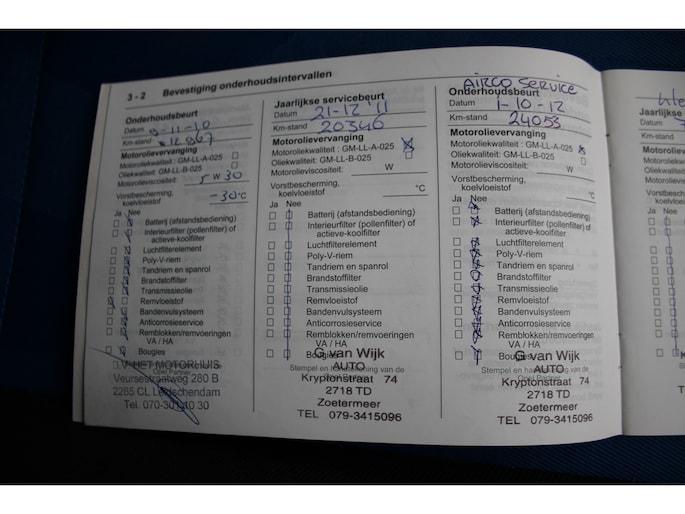 3 - 2 Bevestiging onderhoudsintervallen
Onderhoudsbeurt
Datum 9-11-10
Km-stand 12867
Motorolievervanging
Motoroliekwaliteit: GM-LL-A-025
Oliekwaliteit: GM-LL-B-025
Motorolieviscositeit: 5 W 30
Vorstbescherming,
koelvloeistof -30°C
Ja Nee
Batterij (afstandsbediening)
Interieurfilter (pollenfilter) of
actieve-koolfilter
Luchtfilterelement
Poly-V-riem
Tandriem en spanrol
Brandstoffilter
Transmissieolie
Remvloeistof
Bandenvulsysteem
Anticorrosieservice
Remblokken/remvoeringen
VA / HA
Bougies
HET MOTORHUIS
Opel Partner
Veursestraatweg 280 B
2265 CL Leidschendam
Tel. 070-301 10 30
Jaarlijkse servicebeurt
Datum 21-12 '11
Km-stand 20346
Motorolievervanging
Motoroliekwaliteit: GM-LL-A-025
Oliekwaliteit: GM-LL-B-025
Motorolieviscositeit: W
Vorstbescherming,
koelvloeistof °C
Ja Nee
Batterij (afstandsbediening)
Interieurfilter (pollenfilter) of
actieve-koolfilter
Luchtfilterelement
Poly-V-riem
Tandriem en spanrol
Brandstoffilter
Transmissieolie
Remvloeistof
Bandenvulsysteem
Anticorrosieservice
Remblokken/remvoeringen
VA / HA
Bougies
G van Wijk
AUTO
Stempel en handtekening van de
Kryptonstraat 74
2718 TD
Zoetermeer
TEL 079-3415096
AIRCO SERVICE
Onderhoudsbeurt
Datum 1-10-12
Km-stand 24053
Motorolievervanging
Motoroliekwaliteit: GM-LL-A-025
Oliekwaliteit: GM-LL-B-025
Motorolieviscositeit: W
Vorstbescherming,
koelvloeistof °C
Ja Nee
Batterij (afstandsbediening)
Interieurfilter (pollenfilter) of
actieve-koolfilter
Luchtfilterelement
Poly-V-riem
Tandriem en spanrol
Brandstoffilter
Transmissieolie
Remvloeistof
Bandenvulsysteem
Anticorrosieservice
Remblokken/remvoeringen
VA / HA
Bougies
G van Wijk
AUTO
Stempel en handtekening van de
Kryptonstraat 74
2718 TD
Zoetermeer
TEL 079-3415096
Jaarlijkse
Datum
Km-stand
Motorolie
Motorolie
Oliekwalite
Motorolie
Vorstbes
koelvl
Ja Nee